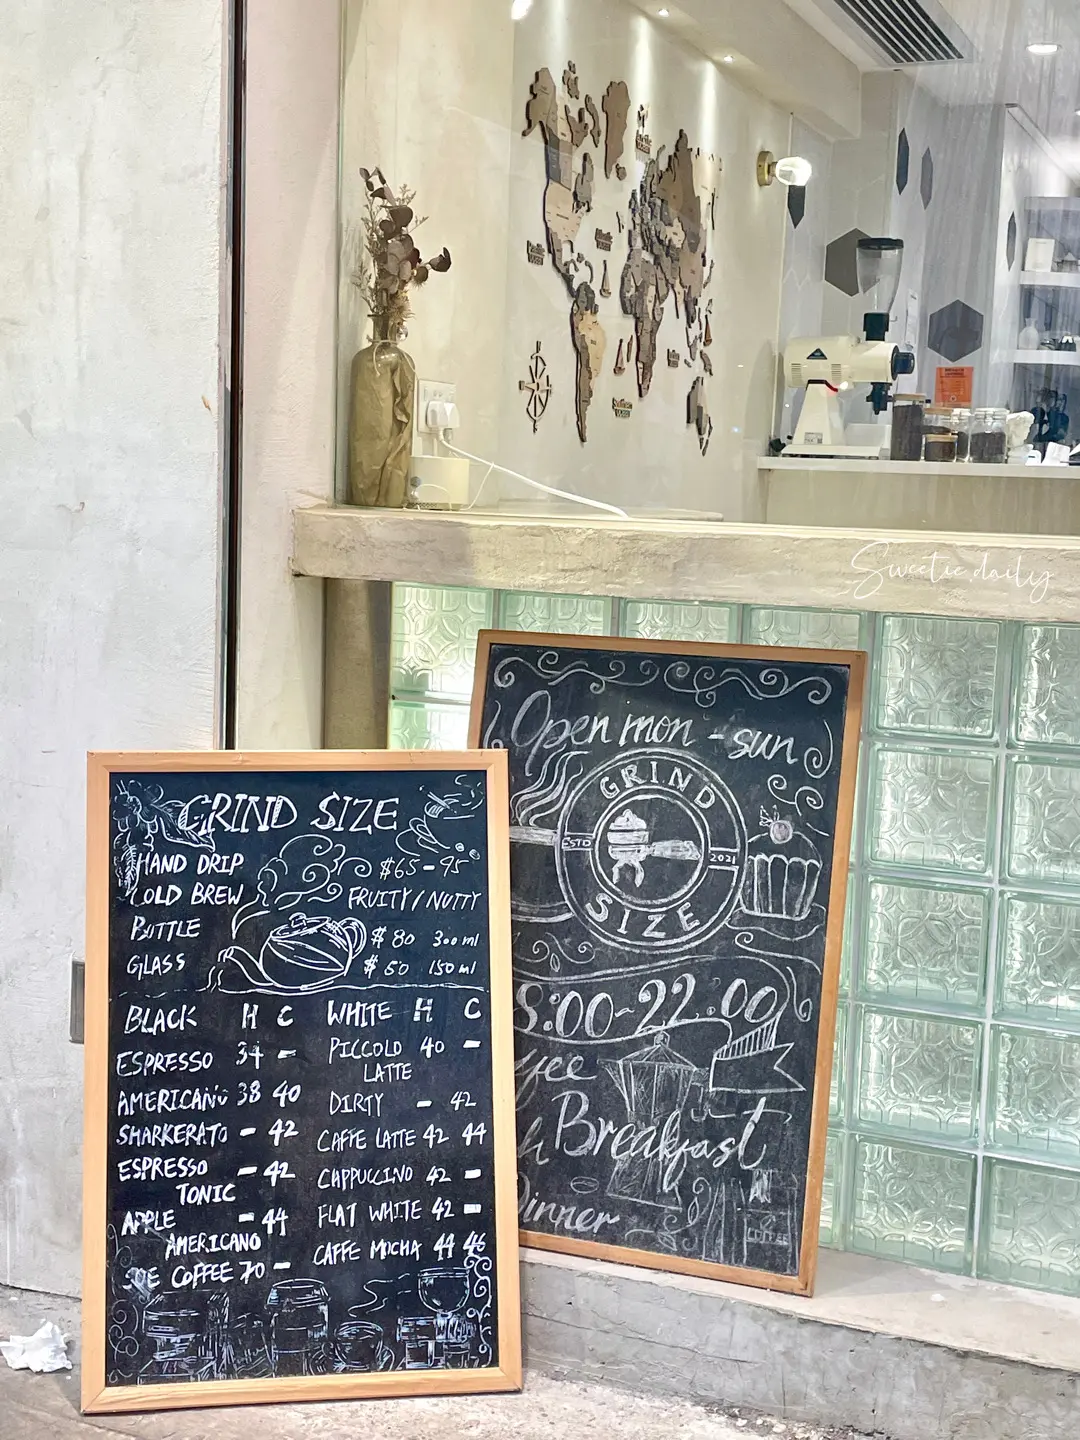 Sweetie.daily
Open mon - sun
GRIND
ESTD 2021
SIZE
8:00-22.00
Breakfast
Dinner
COFFEE
GRIND SIZE
HAND DRIP $65-95
COLD BREW FRUITY/NUTTY
BOTTLE $80 300ml
GLASS $50 150ml
BLACK H C
ESPRESSO 34 -
AMERICANO 38 40
SHARKERATO - 42
ESPRESSO - 42
TONIC
APPLE - 44
AMERICANO
SOE COFFEE 70 -
WHITE H C
PICCOLO 40 -
LATTE
DIRTY - 42
CAFFE LATTE 42 44
CAPPUCCINO 42 -
FLAT WHITE 42 -
CAFFE MOCHA 44 46